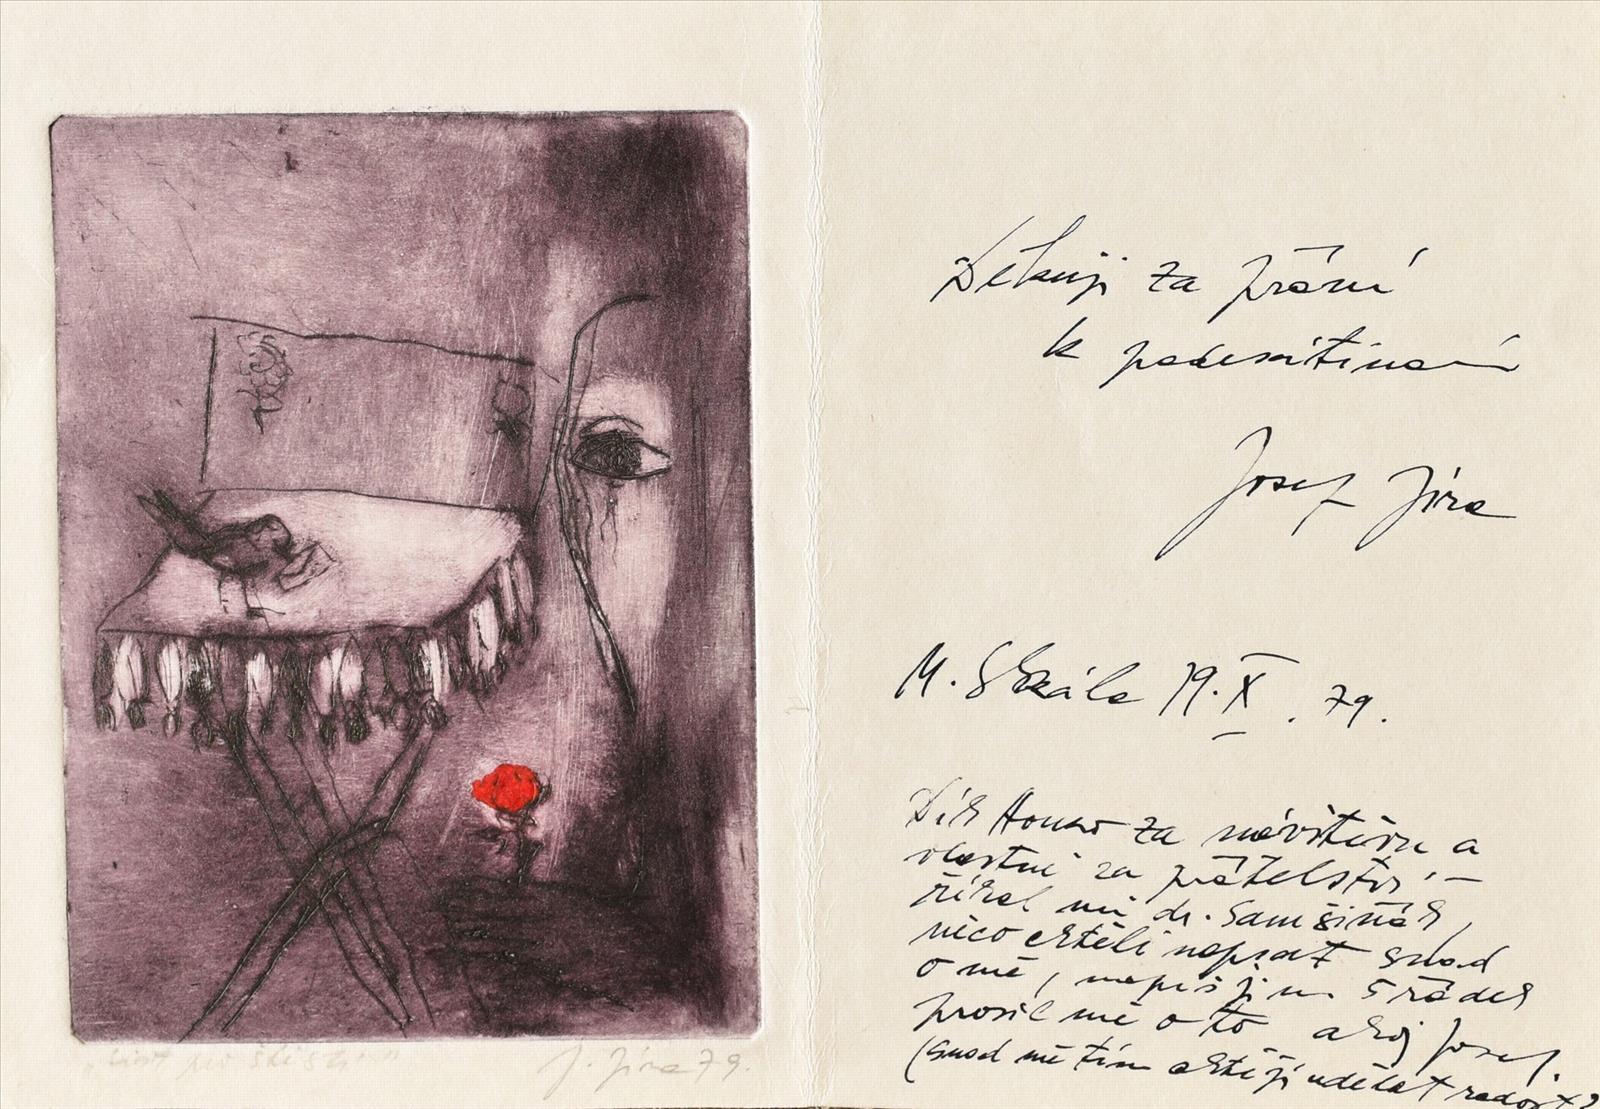 Děkuji za přání
k padesátinám
Josef Jíra
M. Skála 19. X. 79.
Dík Honzo za návštěvu a
vlastně za přátelství –
říkal mi dr. Samšiňák,
něco chtěli napsat snad
o mě, napiš jim 5 řádek
prosil mě o to ahoj Josef.
(snad mě tím chtějí udělat radost?
"List pro
J. Jíra 79.